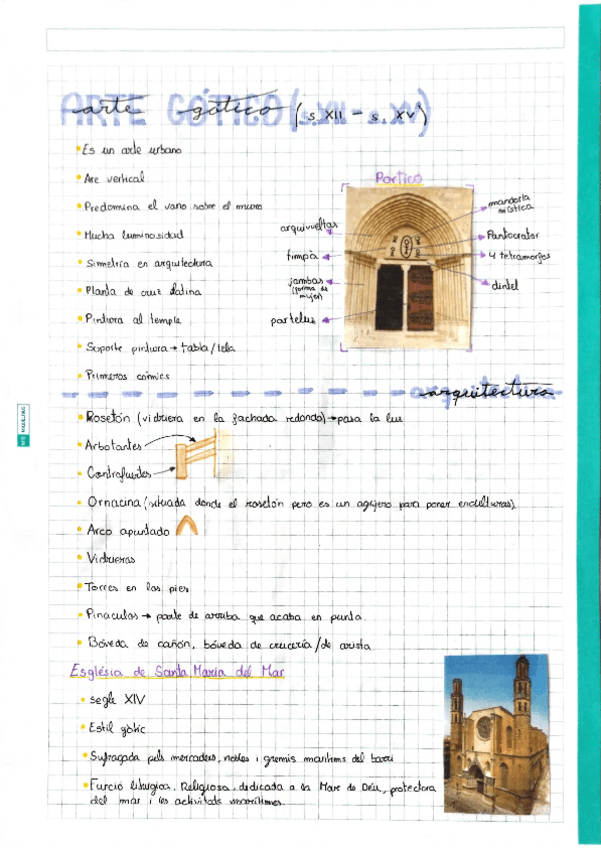 arte gótico (s. XII - s. XV)
• Es un arte urbano
• Are vertical
• Predomina el vano sobre el muro
• Mucha luminosidad
• Simetría en arquitectura
• Planta de cruz latina
• Pintura al temple
• Soporte pintura → tabla/tela
• Primeros cómics
Portico
arquivueltas
timpà
jambas
(forma de
mujer)
parteluz
mandorla
mística
Pantocrator
4 tetramorfos
dintel
arquitectura
• Rosetón (vidriera en la fachada redonda) → pasa la luz
• Arbotantes
• Contrafuertes
• Ornacina (situada donde el rosetón pero es un agujero para poner esculturas)
• Arco apuntado
• Vidrieras
• Torres en los pies
• Pinaculos → parte de arriba que acaba en punta.
• Bóveda de cañón, bóveda de crucería/de arista
Església de Santa Maria del Mar
• segle XIV
• Estil gòtic
• Sufragada pels mercaders, nobles i gremis marítims del barri
• Funció liturgica. Religiosa, dedicada a la Mare de Déu, protectora
del mar i les activitats marítimes.